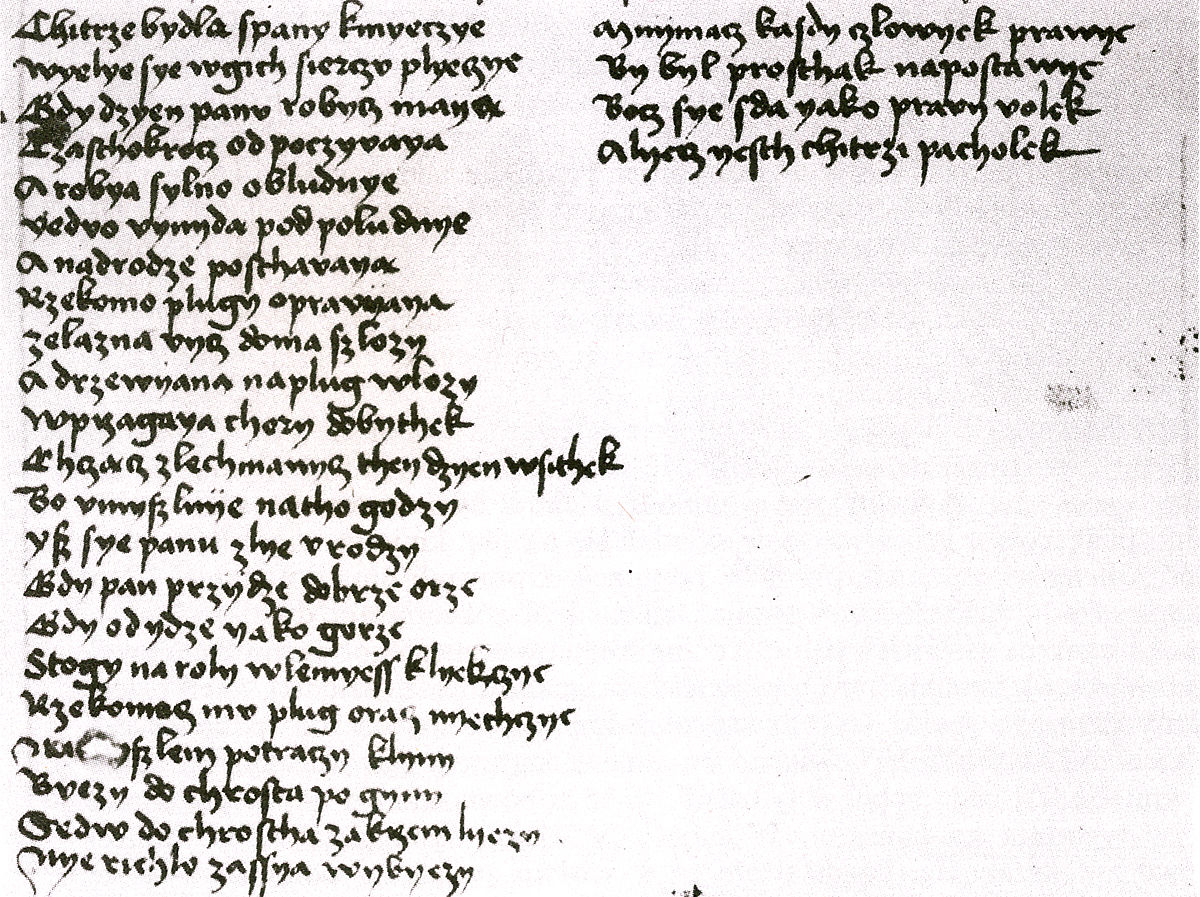 Chitrze bydla spany kmyeczye
Wyelye sye wgich sierczv plyeczye
Gdy dzyen panv robycz mayą
Czaschokrocz odpoczyvaya
A robya sylno obludnye
Vedvo vynyda pod poludnye
A nadrodze poschavaya
Rzekomo plugy opravyaya
Zelazna vycz doma szlozy
A drzewyana naplug wlozy
Wprzagaya chory dobythek
Chczącz zlechmanycz then dzyen wsithek
Bo vmyszlnye natho godzy
Ysz sye panu zlye vrodzy
Gdy pan przydze dobrze orze
Gdy odydze yako gorze
Stogy na roly wlemyess klyekczye
Rzekomocz mv plug oracz nyechczye
potraczy klyny
Byezy do chrosta po gyny
Sedw do chrostha zakrzem lyezy
Nye richlo zassya wybyezy
Mnymacz kasdy czlowyek prawye
By byl prosthak napostawye
Bocz sye sda yako pravy volek
Alyecz yesth chitrzi pacholek